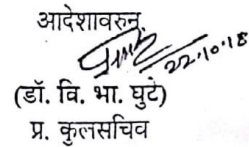 आदेशावरुन,
22.10.18
(डॉ. वि. भा. घुटे)
प्र. कुलसचिव